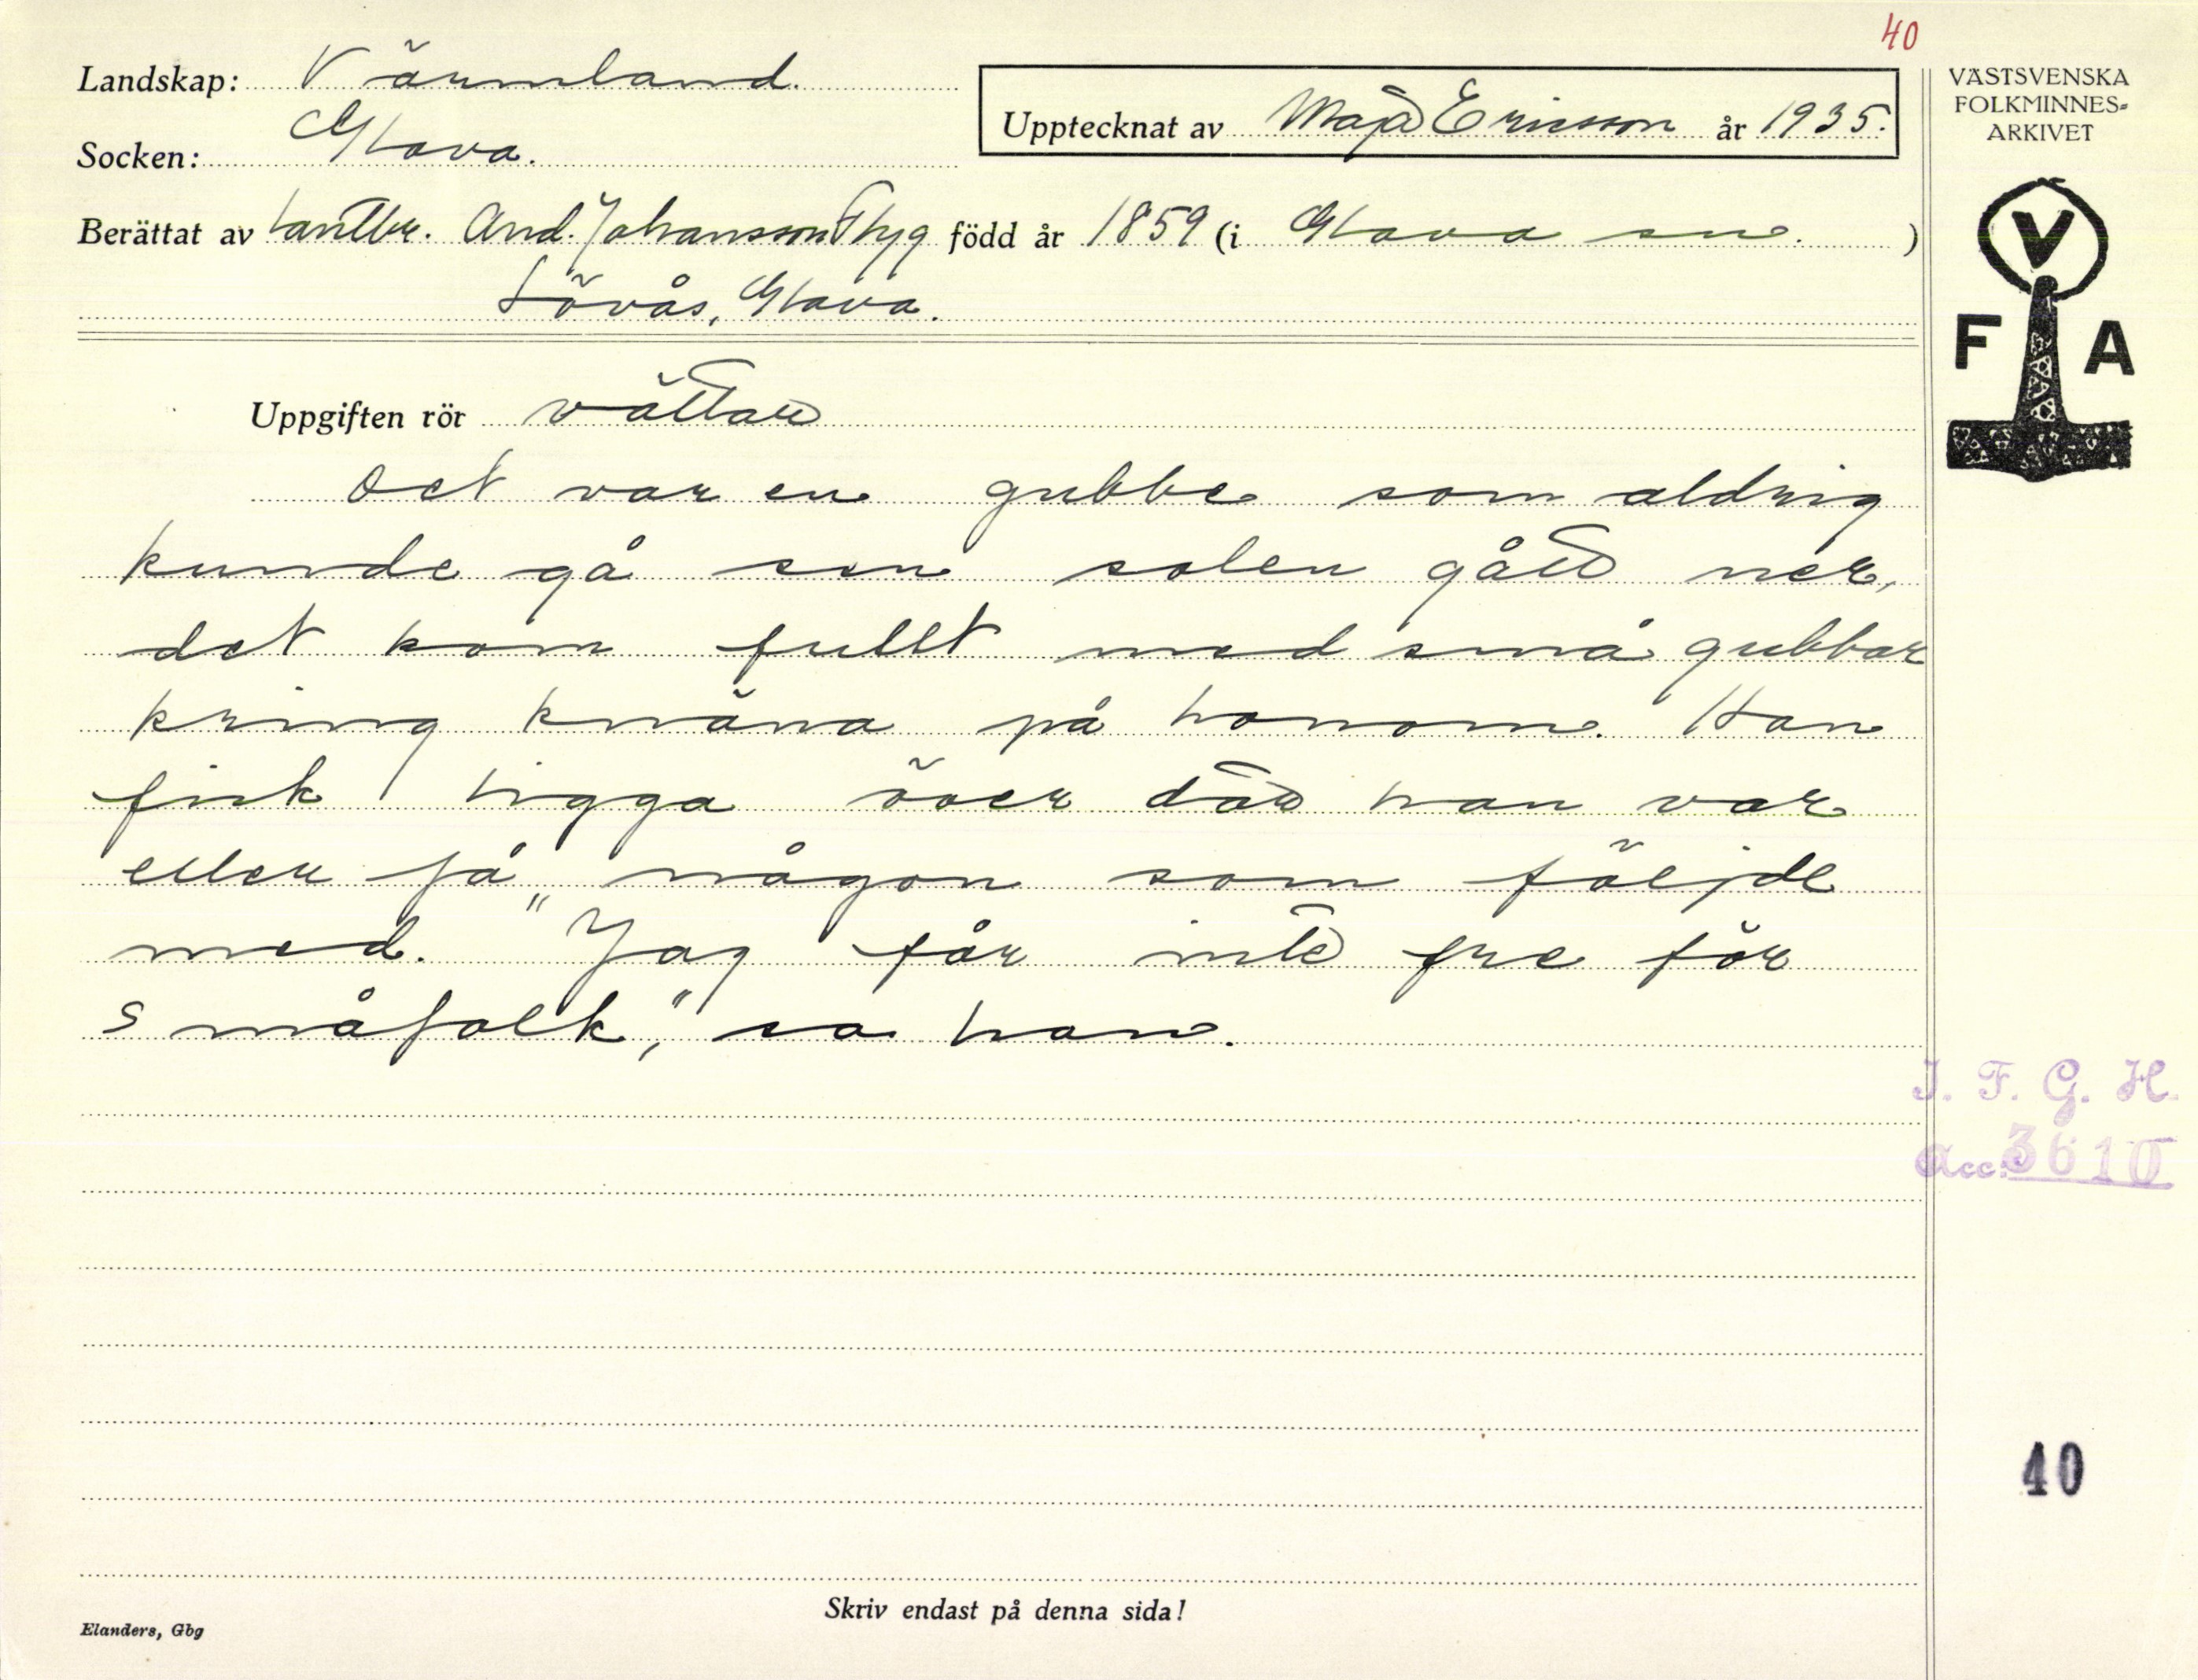 40
Landskap: Värmland.
Socken: Glava.
Upptecknat av Maja Ericsson år 1935.
VÄSTSVENSKA
FOLKMINNES-
ARKIVET
V
F A
Berättat av lantbr. And. Johansson Flyg född år 1859 (i Glava sn.)
Lövås, Glava.
Uppgiften rör vättar
Det var en gubbe som aldrig
kunde gå sen solen gått ner,
det kom fullt med små gubbar
kring knäna på honom. Han
fick ligga över där han var
eller få någon som följde
med. "Jag får inte fre för
småfolk," sa han.
I. F. G. H.
Acc. 3610
40
Skriv endast på denna sida!
Elanders, Gbg